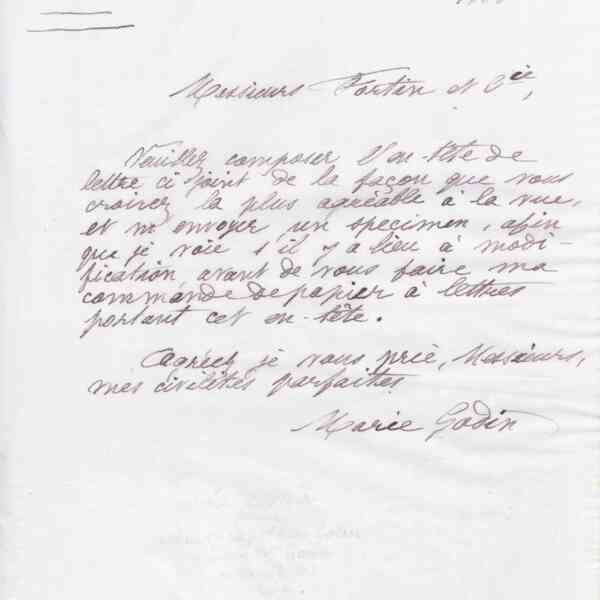 Messieurs Fortin et Cie,
Veuillez composer l'en-tête de
lettre ci-joint de la façon que vous
croirez la plus agréable à la vue,
et m'envoyer un specimen, afin
que je voie s'il y a lieu à modi-
fication avant de vous faire ma
commande de papier à lettres
portant cet en-tête.
Agréez je vous prie, Messieurs,
mes civilités parfaites
Marie Godin